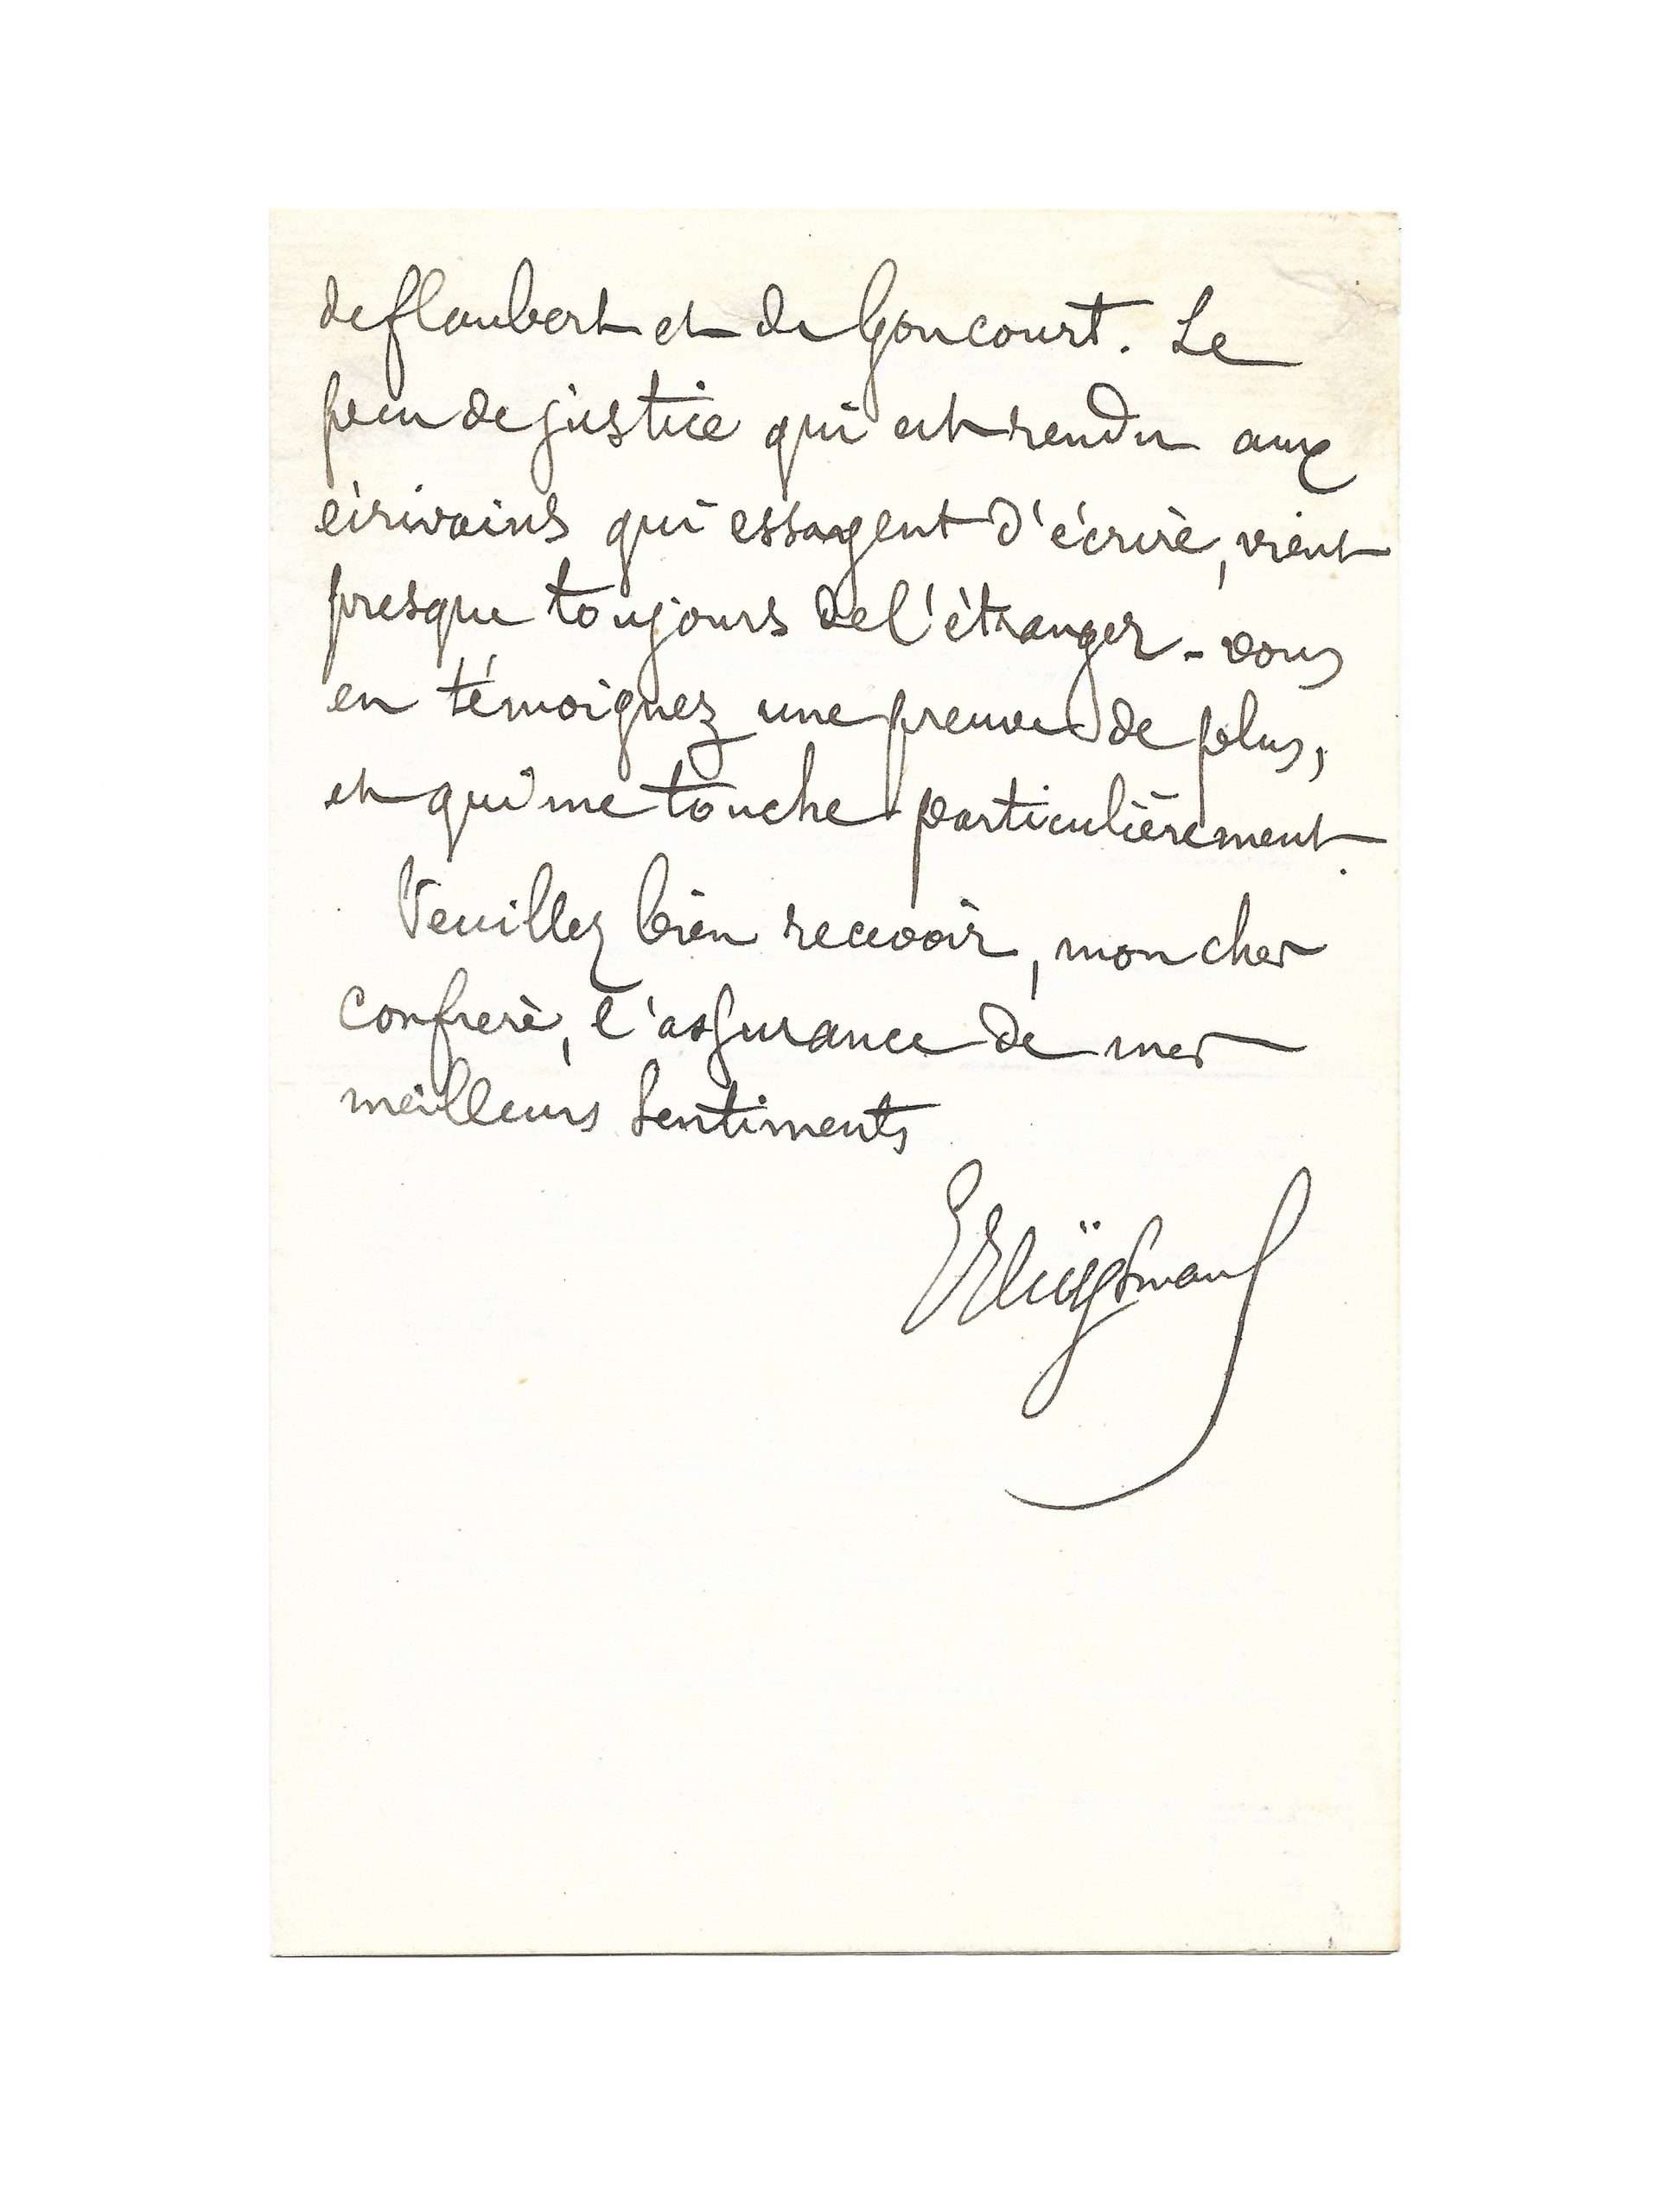 de flaubert et de Goncourt. Le
peu de justice qui est rendu aux
écrivains qui essayent d'écrire, vient
presque toujours de l'étranger - vous
en témoignez une preuve de plus,
et qui me touche particulièrement.
Veuillez bien recevoir, mon cher
confrere, l'assurance de mes
meilleurs sentiments
Huÿsmans